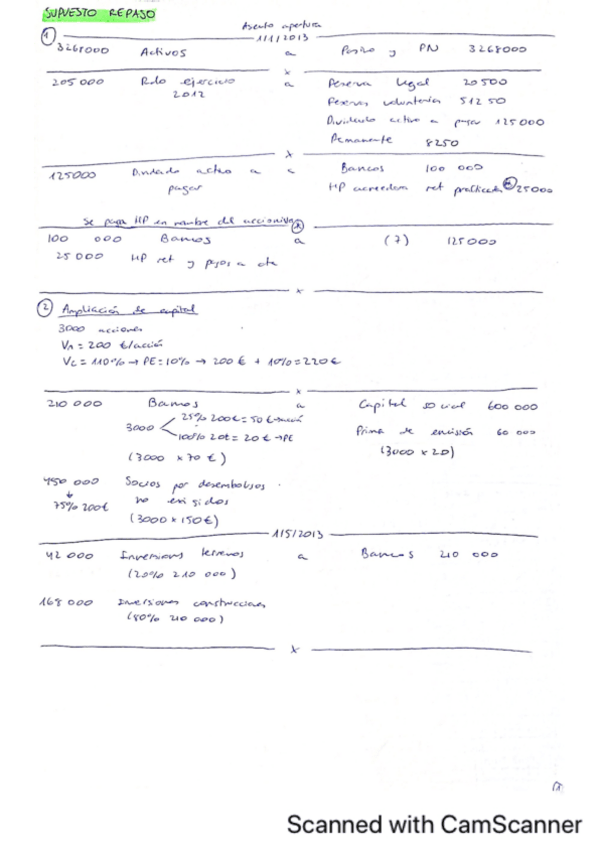 SUPUESTO REPASO
Asiento apertura
① 1/1/2013
3268000 Activos a Pasivo y PN 3268000
x
205 000 Rdo ejercicio a Reserva legal 20 500
2012 Reserva voluntaria 51250
Dividendo activo a pagar 125 000
Remanente 8250
x
125000 Dividendo activo a a Bancos 100 000
pagar HP acreedora ret practicada 25000
Se paga HP en nombre del accionista
100 000 Bancos a (7) 125000
25 000 HP ret y pagos a cta
x
② Ampliación de capital
3000 acciones
Vn = 200 €/acción
Vc = 110% → PE = 10% → 200 € + 10% = 220 €
x
210 000 Bancos a Capital social 600 000
3000 25% 200€ = 50 €
100% 20€ = 20 € → PE Prima de emisión 60 000
(3000 x 70 €) (3000 x 20)
450 000 Socios por desembolsos
75% 200€ no exigidos
(3000 x 150€)
1/5/2013
42 000 Inversiones terrenos a Bancos 210 000
(20% 210 000)
168 000 Inversiones construcciones
(80% 210 000)
x
Scanned with CamScanner